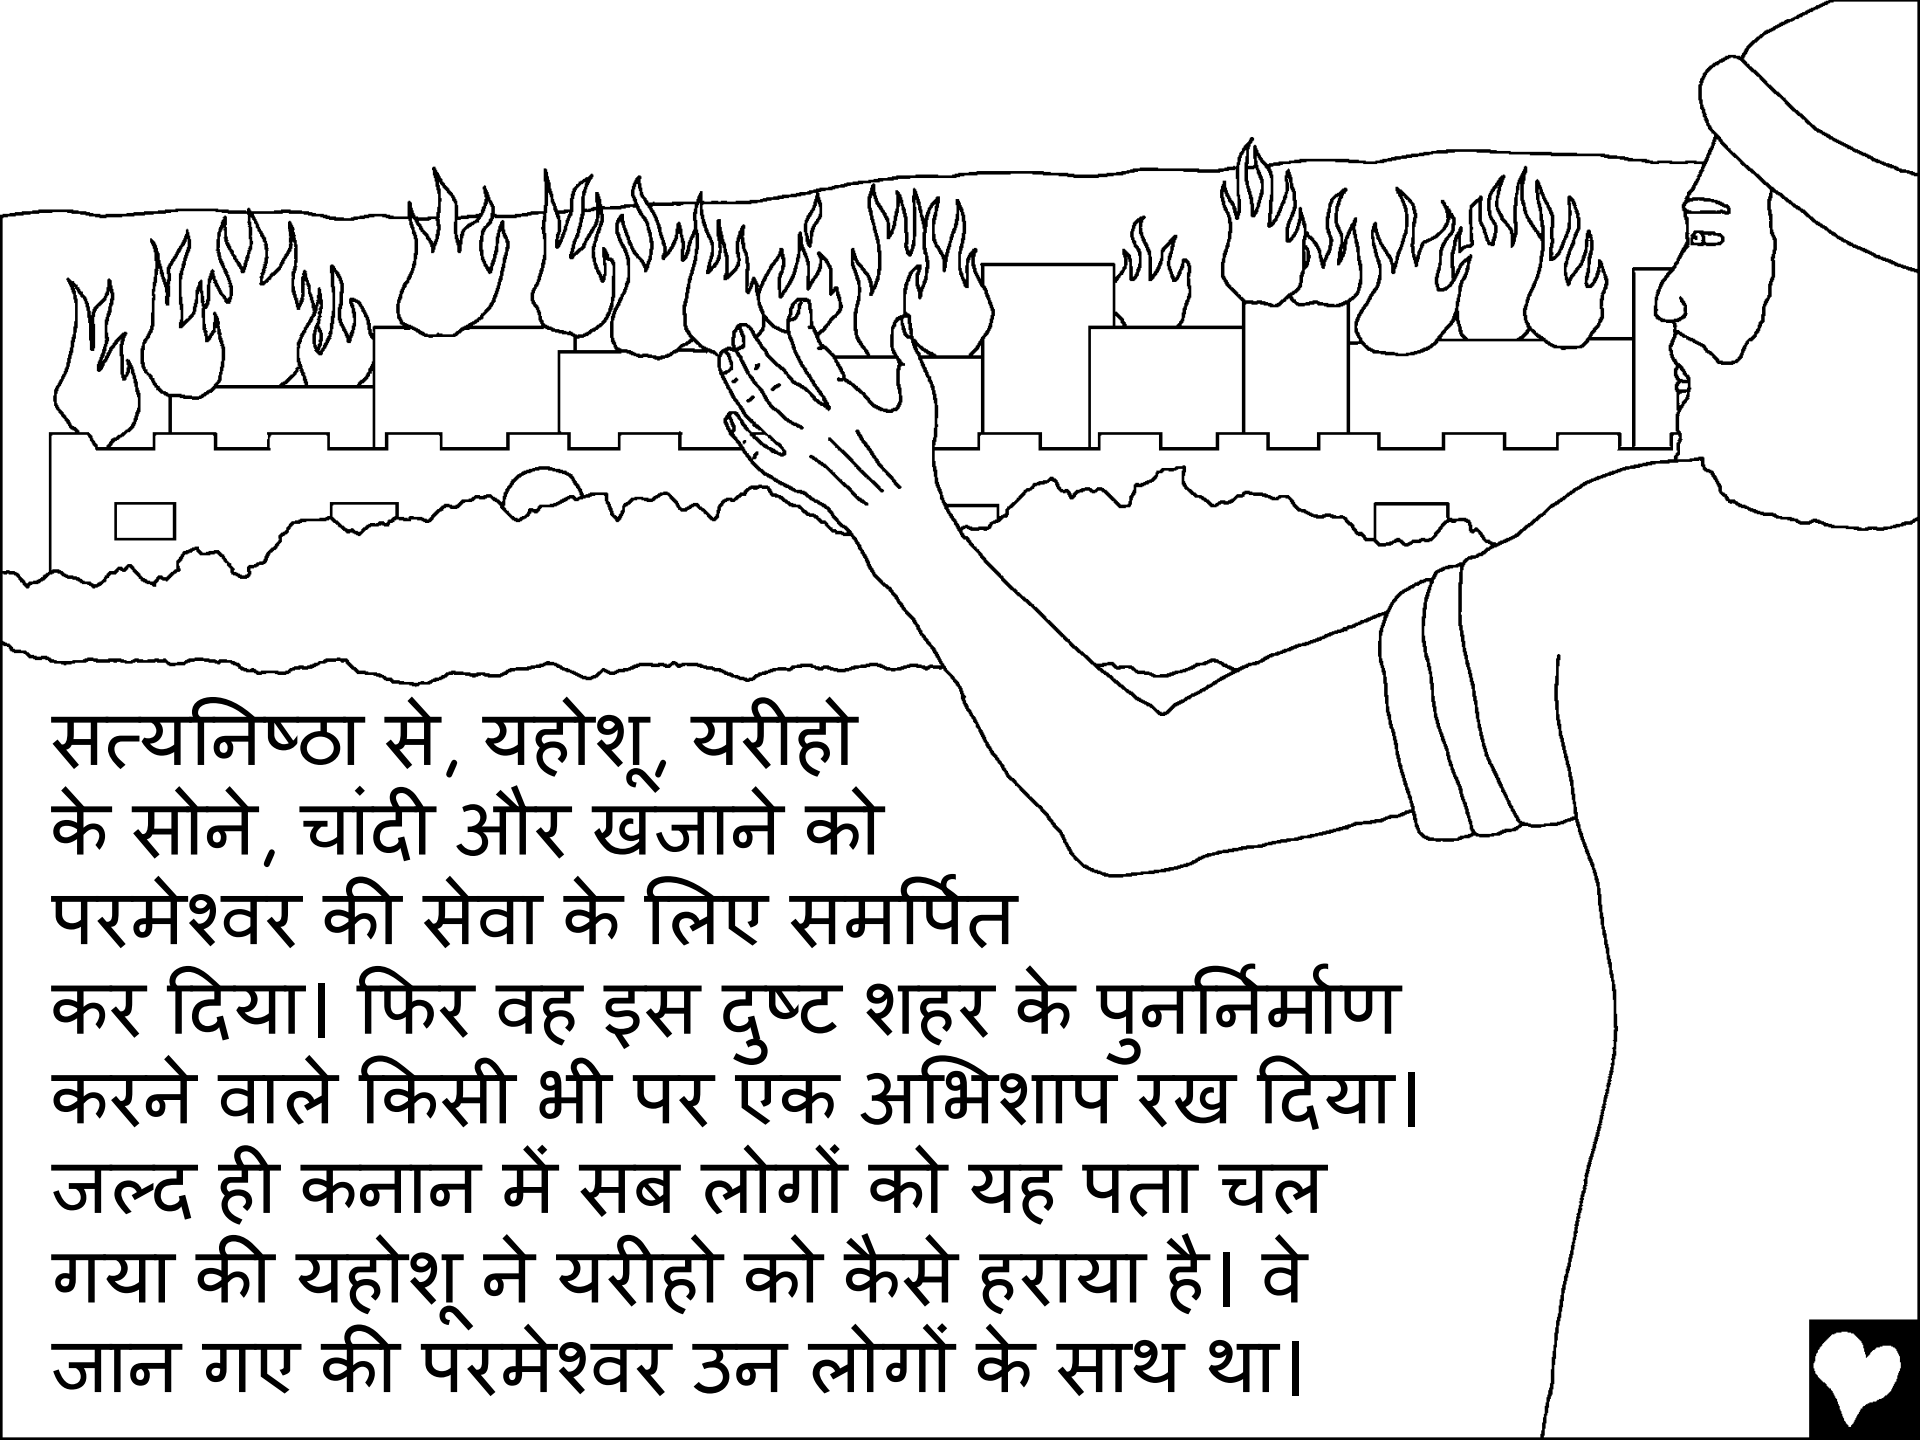 सत्यनिष्ठा से, यहोशू, यरीहो
के सोने, चांदी और खजाने को
परमेश्वर की सेवा के लिए समर्पित
कर दिया। फिर वह इस दुष्ट शहर के पुनर्निर्माण
करने वाले किसी भी पर एक अभिशाप रख दिया।
जल्द ही कनान में सब लोगों को यह पता चल
गया की यहोशू ने यरीहो को कैसे हराया है। वे
जान गए की परमेश्वर उन लोगों के साथ था।